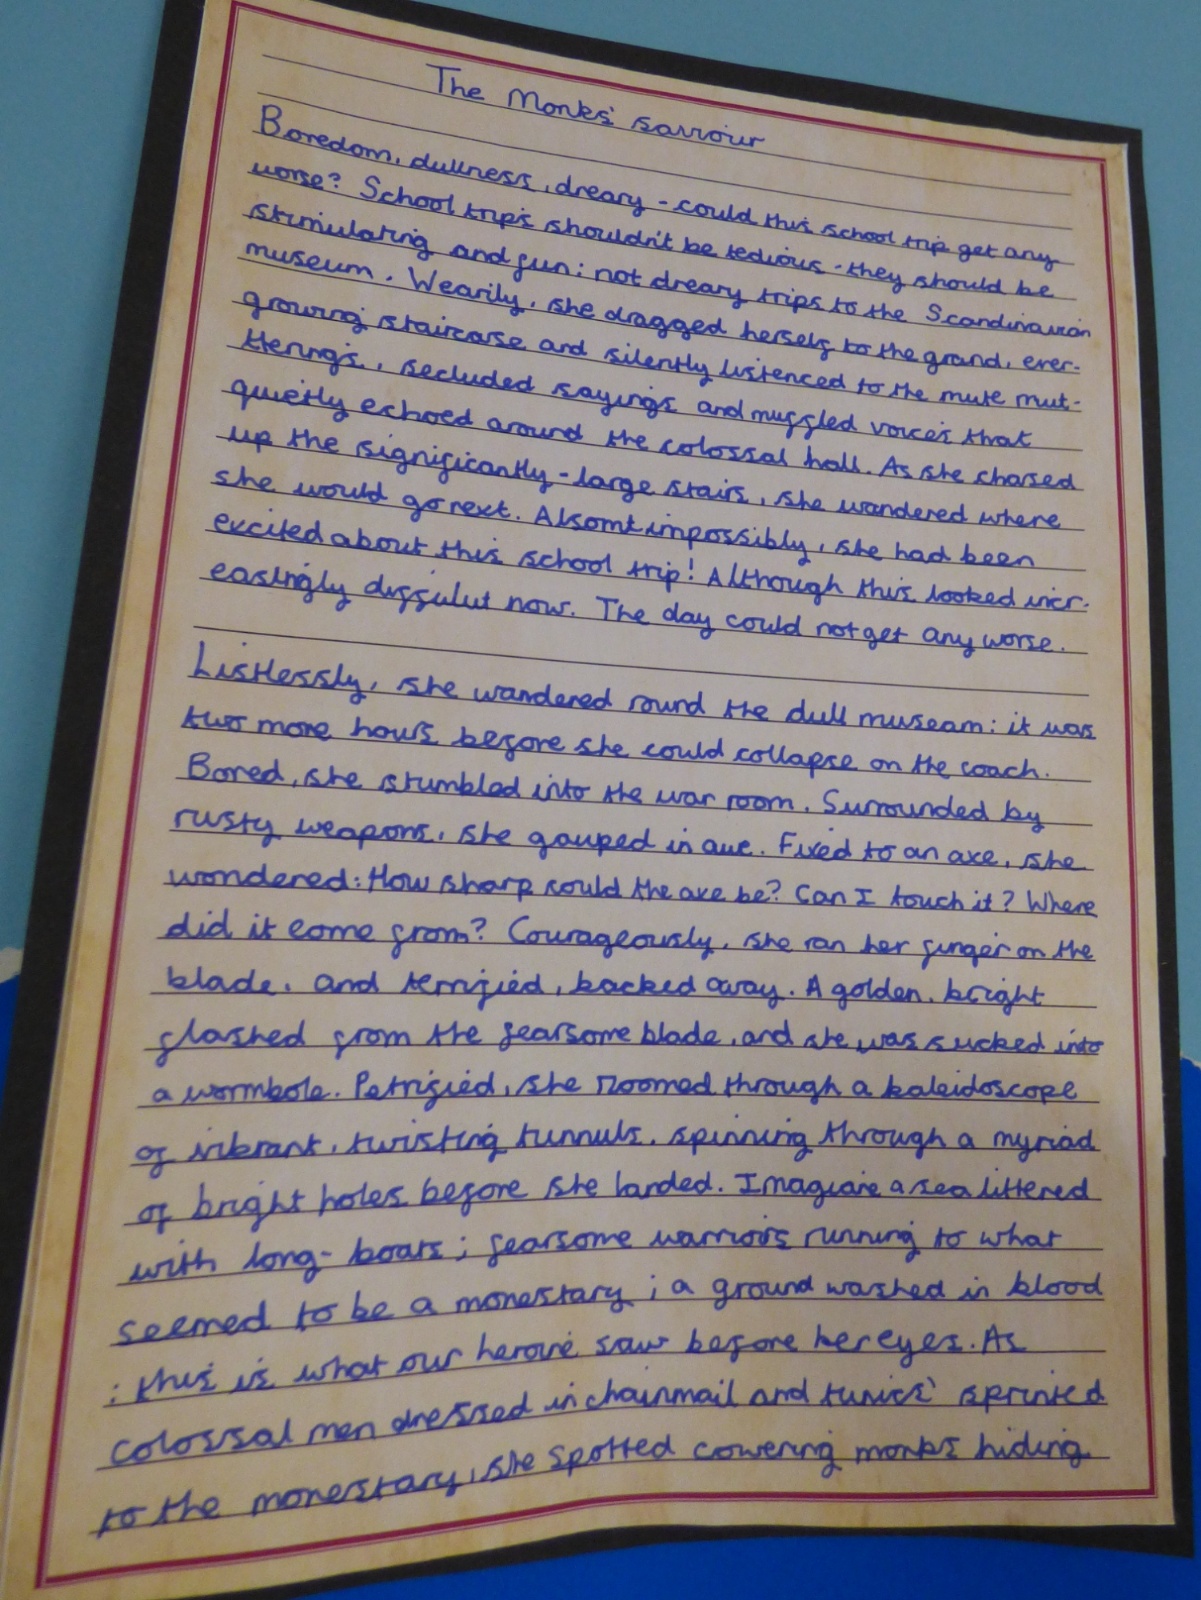 The Monks' saviour
Boredom, dullness, dreary - could this school trip get any
worse? School trips shouldn't be tedious - they should be
stimulating and fun: not dreary trips to the Scandinavian
museum. Wearily, she dragged herself to the grand, ever-
growing staircase and silently listenced to the mute mut-
terings, secluded sayings and muffled voices that
quietly echoed around the colossal hall. As she chased
up the significantly-large stairs, she wandered where
she would go next. Alsomt impossibly, she had been
excited about this school trip! Although this looked incr-
easingly diffulut now. The day could not get any worse.
Listlessly, she wandered round the dull museam: it was
two more hours before she could collapse on the coach.
Bored, she stumbled into the war room. Surrounded by
rusty weapons, she gauped in awe. Fixed to an axe, she
wondered: How sharp could the axe be? Can I touch it? Where
did it come from? Courageously, she ran her finger on the
blade, and terrified, backed away. A golden, bright
flashed from the fearsome blade, and she was sucked into
a wormhole. Petrified, she zoomed through a kaleidoscope
of vibrant, twisting tunnuls, spinning through a myriad
of bright holes before she landed. Imagine a sea littered
with long-boats; fearsome warriors running to what
seemed to be a monestary; a ground washed in blood
: this is what our heroine saw before her eyes. As
colossal men dressed in chainmail and tunics' sprinted
to the monestary, she spotted cowering monks hiding